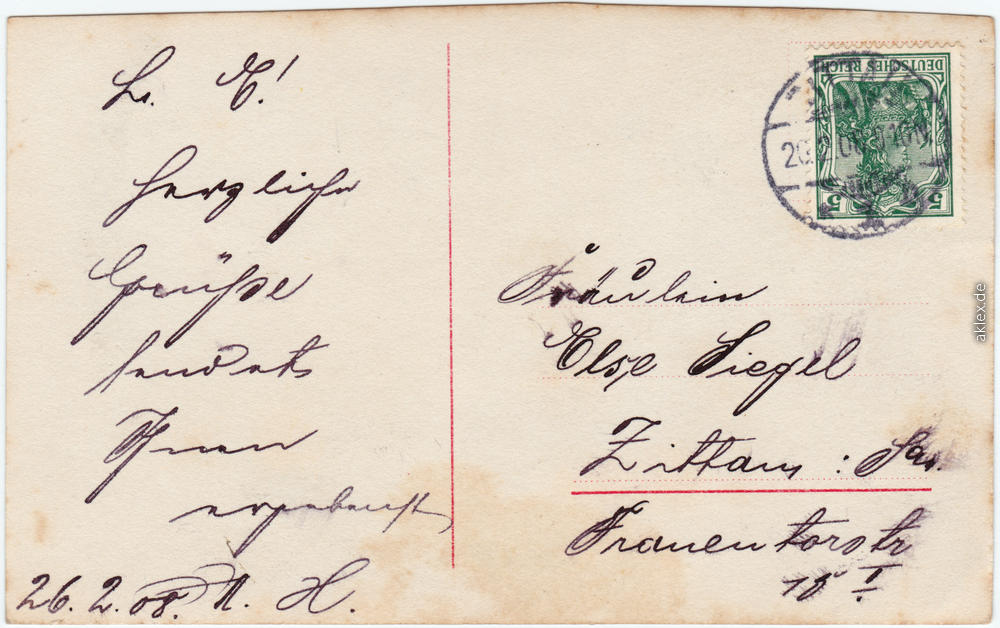 L. E!
Herzliche
Grüße
sendet
Ihnen
ergebenst
26. 2. 08. A. H.
DEUTSCHES REICH
5 5
Fräulein
Else Siegel
Zittau : Sa.
Frauentorstr
18 I
aklex.de